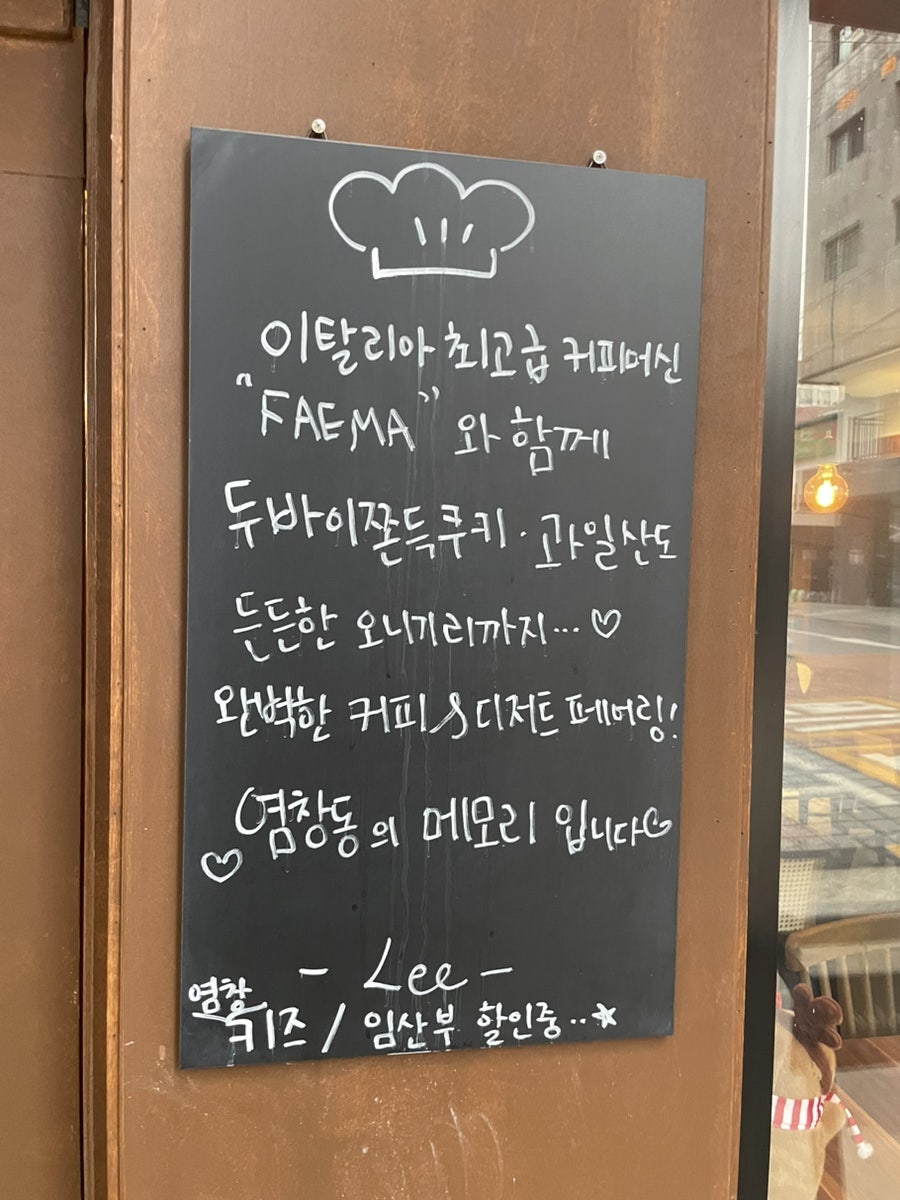 이탈리아 최고급 커피머신
"FAEMA" 와 함께
두바이쫀득쿠키 · 과일산도
든든한 오니기리까지... ♡
완벽한 커피 & 디저트 페어링!
염창동의 메모리 입니다♡
- Lee -
염창
키즈 / 임산부 할인중..☆